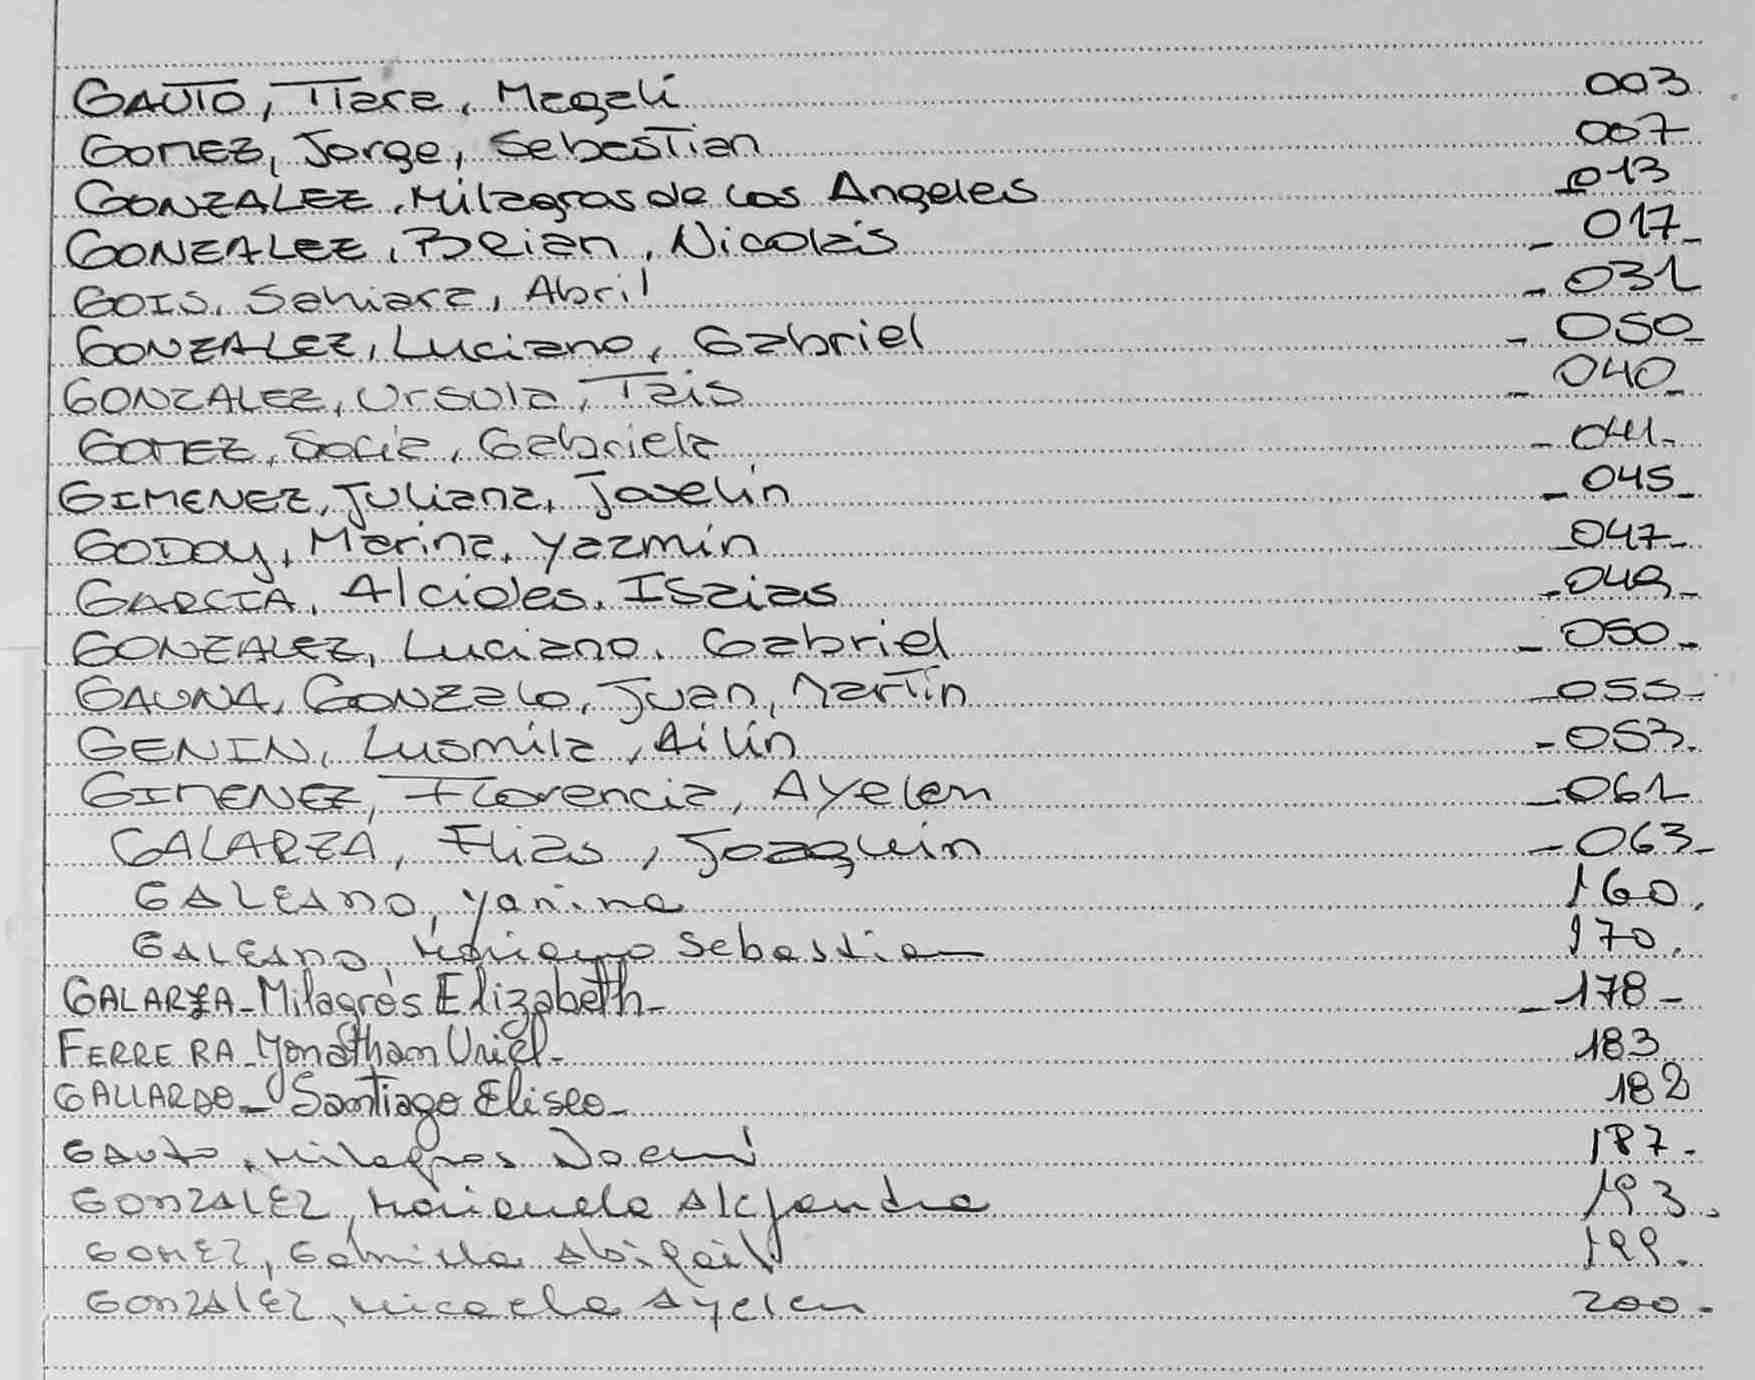 GAUTO, Tiara, Magali 003
GOMEZ, Jorge, Sebastian 007
GONZALEZ, Milagros de Los Angeles _ 013
GONZALEZ, Brian, Nicolás _ 017_
GOIS, Samiara, Abril _ 031
GONZALEZ, Luciano, Gabriel _ 050_
GONZALEZ, Ursula, Tais _ 040_
GOMEZ, Socia, Gabriela _ 041_
GIMENEZ, Juliana, Joselin _ 045_
GODOY, Marina, Yazmin _047_
GARCIA, Alcides, Isaias _049_
GONZALEZ, Luciano, Gabriel _ 050_
GAUNA, GONZalo, Juan, Martin _055_
GENIN, Lusmila, Ailin _053_
GIMENEZ, Florencia, Ayelen _061
GALARZA, Elias, Joaquin _063_
GALEANO, Yanina 160.
GALEANO, Mariano Sebastian 170.
GALARZA_Milagros Elizabeth_ _178_
FERREIRA_Jonathan Uriel_ 183
GALLARDO_ Santiago Eliseo_ 182
GAuto, Milagros Noemí 187_
GONZALEZ, Marianela Alejandra 193.
GOMEZ, Gabriela Abigail 199.
GONZALEZ, Micaela Ayelen 200.